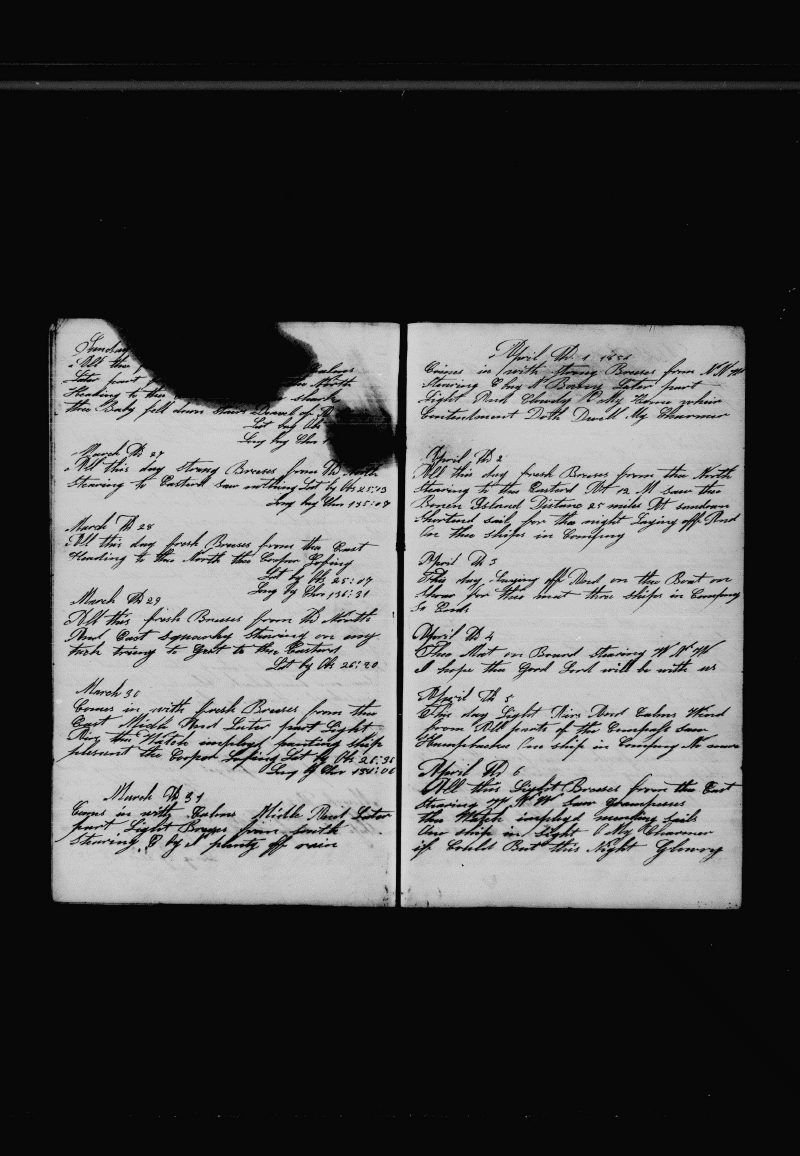 Sunday
All this
Later part the North
Heading to the
the Baby fell down Stairs
Lat by Obs
Long by Chro
March Th 27
All this day Strong Breeses from Th North
Stearing to Easturd Saw nothing Lat by Obs 25:13
Long by Chro 135:07
March Th 28
All this day fresh Breeses from the East
Heading to the North the Cooper Coping
Lat by Obs 25:07
Long by Chro 136:31
March Th 29
All this fresh Breeses from Th North
And East squawly Stearing on any
tack trying to Get to the Easturd
Lat by Obs 26:20
March 30
Comes in with fresh Breeses from the
East Middle And Later part Light
Airs the Watch employ painting Ship
plesent the Cooper Lat by Obs 26:35
Long by Chro 134:06
March Th 31
Comes in with Calms Middle And Later
part Light Breeses from South
Stearing E by S plenty off rain
April Th 1
Comes in with Strong Breeses from N N W
Stearing E by N Barny Later part
Light And Cloudy My Home whair
Contendment Doth Dwell My Charmer
April Th 2
All this day fresh Breeses from the North
Stearing to the Easturd At 12 M Saw the
Island Distance 25 miles At sundown
Shortend sail for the night Laying off And
on three ships in Company
April Th 3
This day Laying off And on the Boat on
Shore for three ships in Company
So Ends
April Th 4
on Board stearing W N W
I hope the Good Lord will be with us
April Th 5
This day Light Airs And Calms Wind
from All parts of the Compass Saw
Humpbacks One ship in Company No more
April Th 6
All this Light Breeses from the East
Stearing W N W Saw Grampuses
the Watch imployd mending sails
One ship in Sight O My Charmer
if Could But this Night